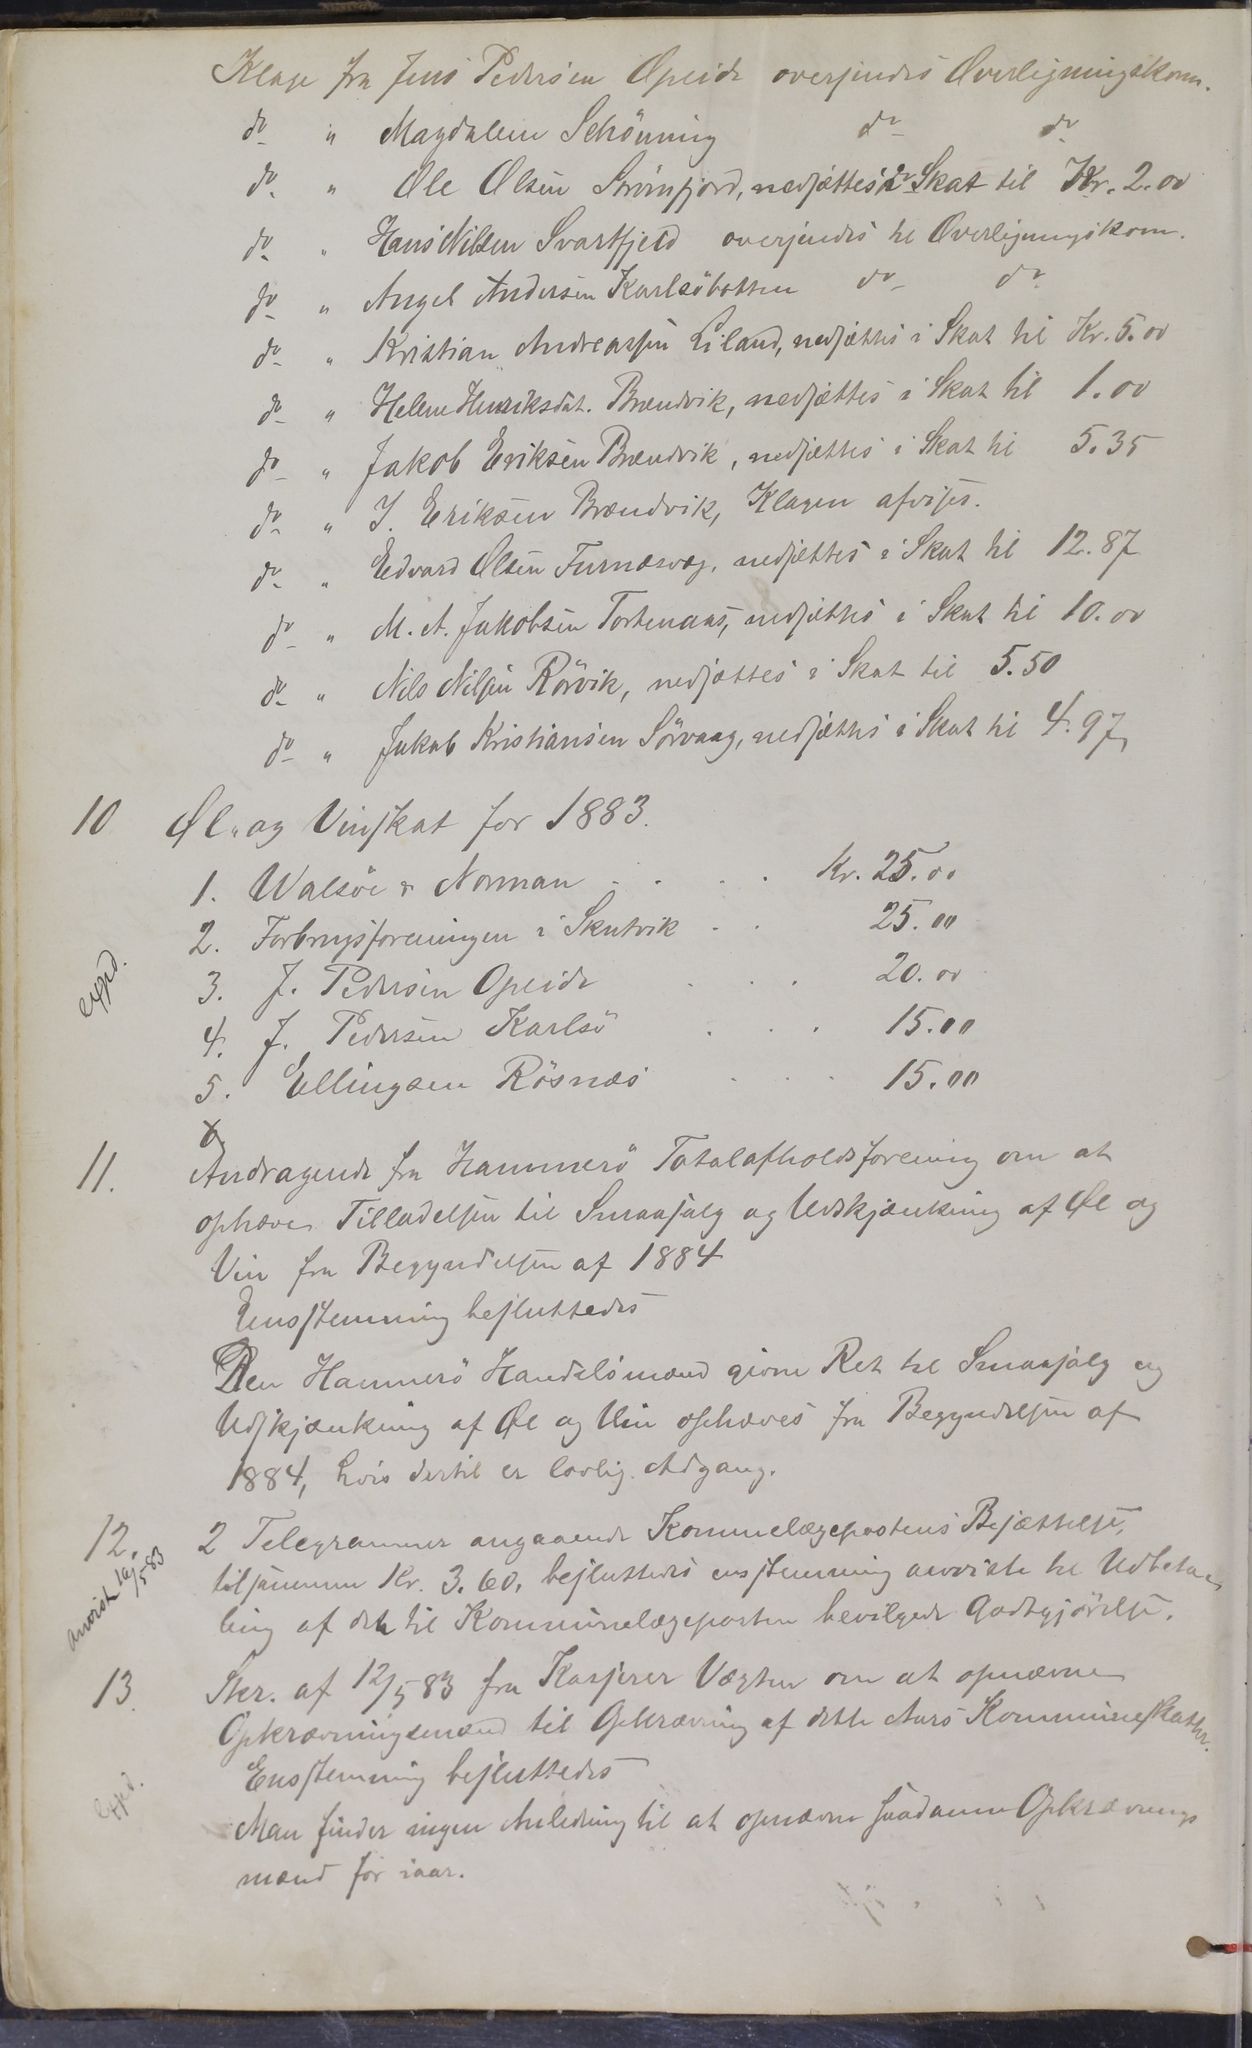 Klage fra Jens Pedersen Opeide oversendes Overligningskom.
do " Magdalene Schönning do do
do " Ole Olsen Strömfjord, nedsættes i Skat til Kr. 2.00
do " Hans Nilsen Svartfjeld oversendes til Overligningskom.
do " Angel Andersen Karlsöbotten do do
do " Kristian Andreassen Liland, nedsættes i Skat til Kr. 5.00
do " Helene Henriksdat. Brændvik, nedsættes i Skat til 1.00
do " Jakob Eriksen Brændvik, nedsættes i Skat til 5.35
do " J. Eriksen Brændvik, Klagen afvises.
do " Edvard Olsen Furnæsvæg, nedsættes i Skat til 12.87
do " M. A. Jakobsen Tortenaas, nedsættes i Skat til 10.00
do " Nils Nilsen Rörvik, nedsættes i Skat til 5.50
do " Jakob Kristiansen Sörvaag, nedsættes i Skat til 4.97
10 Øl- og Vinskat for 1883.
1. Walsöe & Norman . . . . Kr. 25.00
2. Forbrugsforeningen i Skutvik . . 25.00
expd.
3. J. Pedersen Opeide . . . 20.00
4. J. Pedersen Karlsö . . . 15.00
5. Ellingsen Rösnæs . . . 15.00
11. Andragende fra Hammerö Totalafholdsforening om at
ophæve Tilladelsen til Smaasalg og Udskjænkning af Øl og
Vin fra Begyndelsen af 1884
Enstemmig besluttedes
Den Hammerö Handelsmænd givne Ret til Smaasalg og
Udskjænkning af Øl og Vin ophæves fra Begyndelsen af
1884, hvis dertil er lovlig Adgang.
12. 2 Telegrammer angaaende Kommunelægepostens Besættelse,
anvist 16/5 83
tilsammen Kr. 3.60, besluttedes enstemmig anviste til Udbeta-
ling af den til Kommunelægeposten bevilgede Godtgjörelse.
13. Skr. af 12/5 83 fra Kasserer Vægter om at opnævne
Opkrævningsmænd til Opkrævning af dette Aars Kommuneskatter.
Enstemmig besluttedes
expd.
Man finder ingen Anledning til at opnævne saadanne Opkrævnings
mænd for iaar.